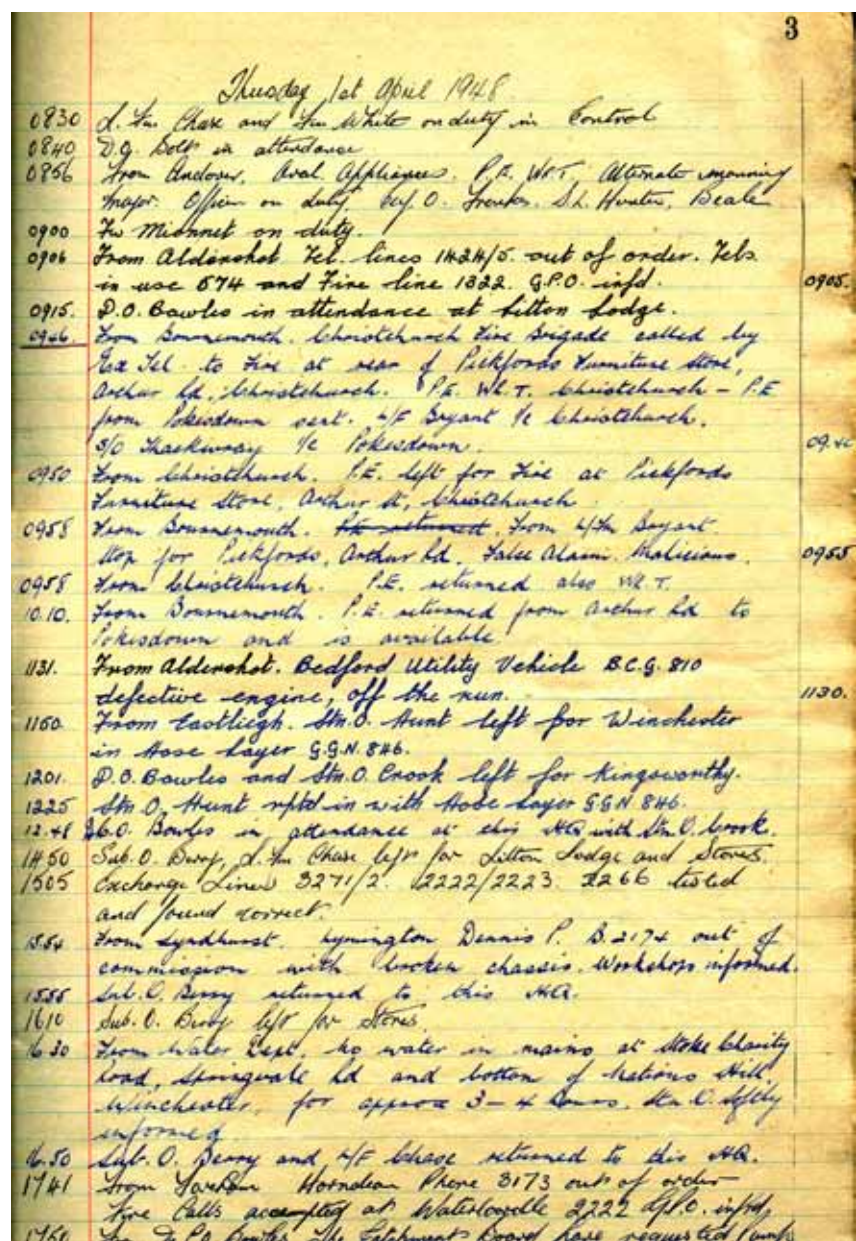 3
Thursday 1st April 1948
0830 L. Fm Chase and Fm White on duty in Control
0840 D.O. in attendance
0856 From Andover, Oval Appliances. P.E. Wr.T. Alternate manning
major. Officers on duty O. S.L. Hunter, Beale
0900 Fm Mionnet on duty.
0906 From Aldershot Tel. lines 1424/5 out of order. Tels.
in use 574 and Fire line 1322. G.P.O. infd. 0905.
0915. D.O. Bowles in attendance at Litton Lodge.
0946 From Bournemouth. Christchurch Fire Brigade called by
Ex Tel. to Fire at rear of Pickfords Furniture Store,
Arthur Rd, Christchurch. P.E. Wr.T. Christchurch – P.E
from Pokesdown sent. L/F Bryant i/c Christchurch.
S/O i/c Pokesdown.
0950 From Christchurch. P.E. left for Fire at Pickfords
Furniture Store, Arthur St, Christchurch
0958 From Bournemouth. From L/Fm Bryant.
Stop for Pickfords, Arthur Rd. False Alarm Malicious. 0955
0958 From Christchurch. P.E. returned also Wr.T.
10.10. From Bournemouth. P.E. returned from Arthur Rd to
Pokesdown and is available.
1131. From Aldershot. Bedford Utility Vehicle B.C.G. 810
defective engine, off the run. 1130.
1150 From Eastliegh. Stn.O. Hunt left for Winchester
in Hose Layer G.G.N. 846.
1201. D.O. Bowles and Stn.O. Crook left for Kingsworthy.
1225 Stn O. Hunt rptd in with Hose Layer G.G.N 846.
12.48 D.O. Bowles in attendance at this HQ with Stn.O. Crook.
1450 Sub.O. Berry, L. Fm Chase left for Litton Lodge and Stores.
1505 Exchange Lines 3271/2. 2222/2223 2266 tested
and found correct.
1554 From Lyndhurst. Lymington Dennis P. B.2174 out of
commission with broken chassis. Workshops informed.
1555 Sub. O. Berry returned to this HQ.
1610 Sub. O. Berry left for Stores
16.30 From Water Dept. No water in mains at Stoke Charity
Road, Springvale Rd and bottom of Nations Hill,
Winchester, for approx 3–4 hours. Stn O. Softly
informed.
16.50 Sub. O. Berry and L/F Chase returned to this HQ.
1741 From Fareham Horndean Phone 3173 out of order
Fire Calls accepted at Waterlooville 2222 G.P.O. infd.
1750 Bowles. The Catchment Board have requested Pump